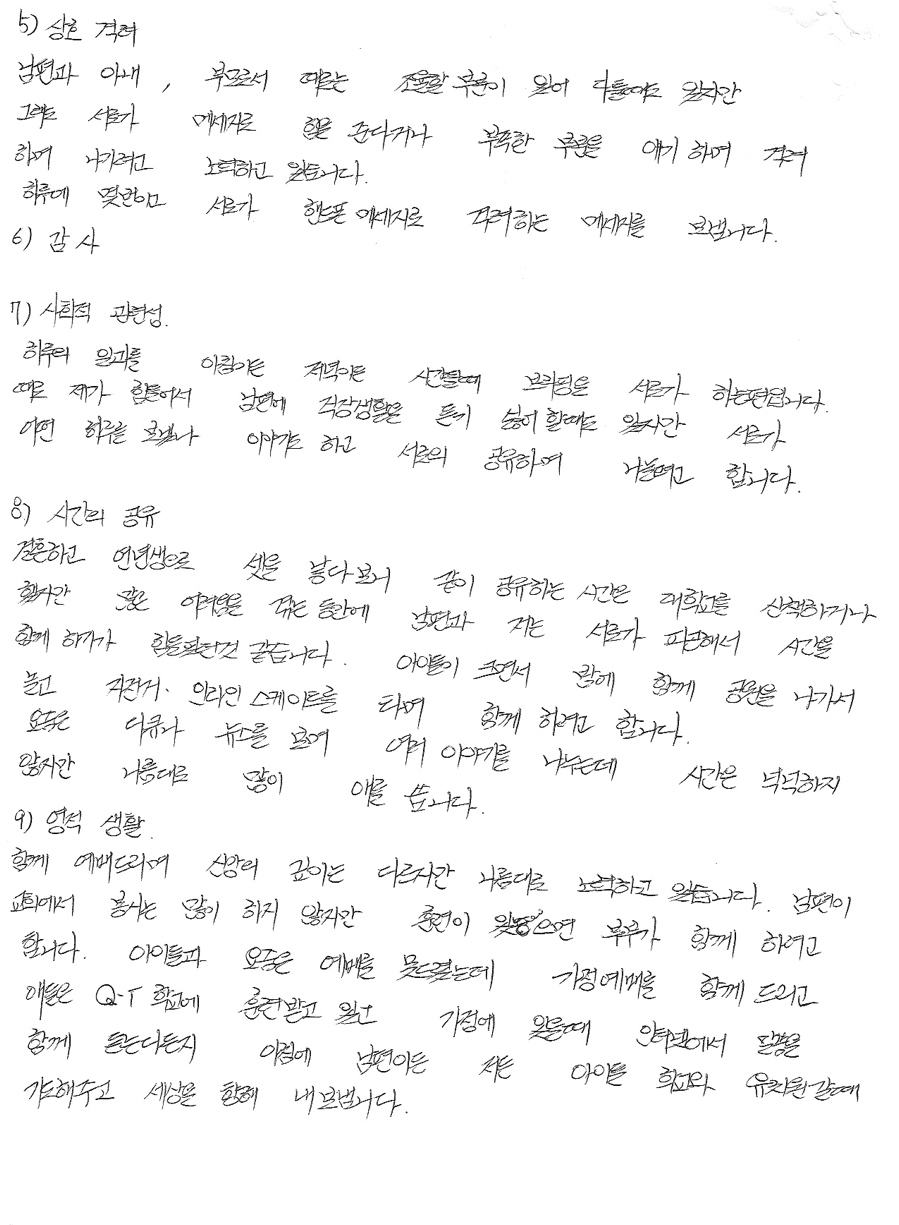 5) 상호 격려
남편과 아내, 부모로서 때로는 조율할 부분이 있어 다툴때도 있지만
그래도 서로가 메세지로 힘을 준다거나 부족한 부분을 얘기 하며 격려
하며 나가려고 노력하고 있습니다.
하루에 몇번이고 서로가 핸드폰 메세지로 격려하는 메세지를 보냅니다.
6) 감사
7) 사회적 관련성.
하루의 일과를 아침이든 저녁이든 시간될때 브리핑을 서로가 하는편입니다.
때로 제가 힘들어서 남편에 직장생활은 듣기 싫어 할때도 있지만 서로가
어떤 하루를 보냈나 이야기도 하고 서로의 공유하며 나눌려고 합니다.
8) 시간의 공유
결혼하고 연년생으로 셋을 낳다보니 같이 공유하는 시간은 대학교를 산책하거나
했지만 많은 어려움을 겪는 동안에 남편과 저는 서로가 피곤해서 시간을
함께 하기가 힘들었던것 같습니다. 아이들이 크면서 밤에 함께 공원을 나가서
놀고 자전거. 인라인 스케이트를 타며 함께 하려고 합니다.
요즘은 다큐나 뉴스를 보며 여러 이야기를 나누는데 시간은 넉넉하지
않지만 나름대로 많이 애를 씁니다.
9) 영적 생활.
함께 예배드리며 신앙의 깊이는 다르지만 나름대로 노력하고 있습니다. 남편이
교회에서 봉사는 많이 하지 않지만 훈련이 있으면 부부가 함께 하려고
합니다. 아이들과 요즘은 예배를 못드렸는데 가정예배를 함께 드리고
애들은 Q.T 학교에 훈련받고 있고 가정에 있을때 인터넷에서 말씀을
함께 듣는다든지 아침에 남편이든 저든 아이들 학교와 유치원갈때
기도해주고 세상을 향해 내보냅니다.